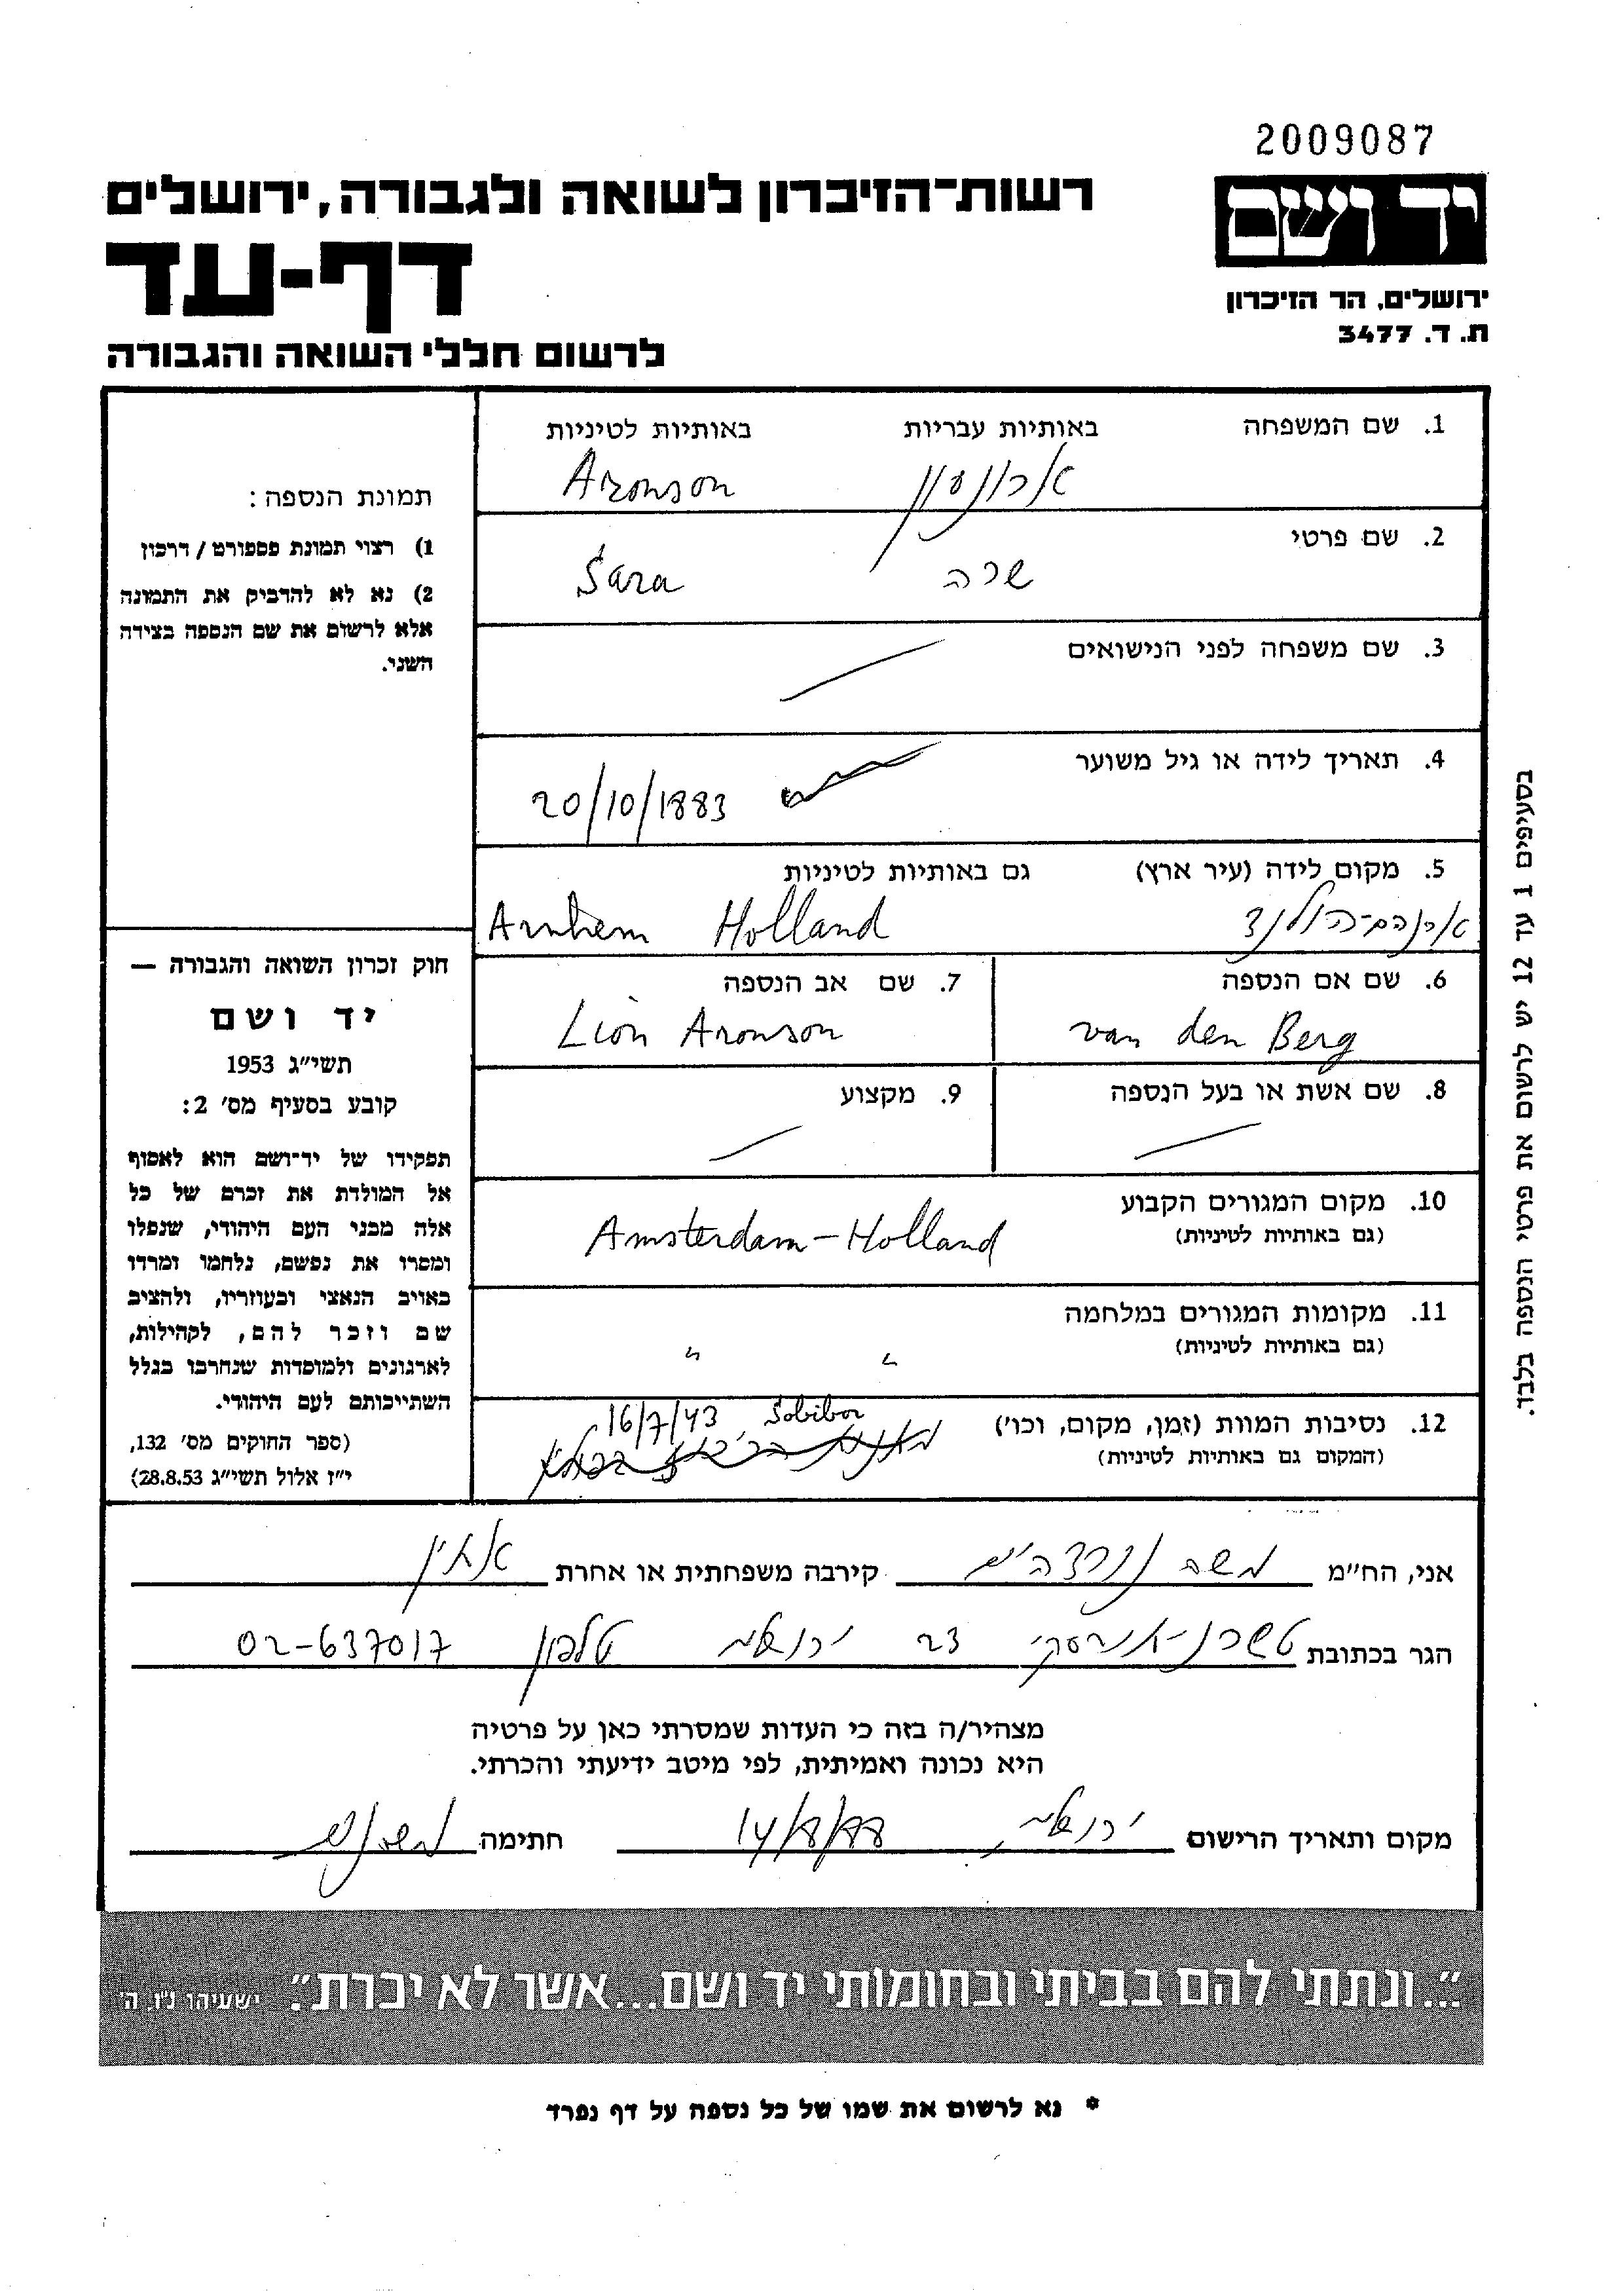 2009087
רשות-הזיכרון לשואה ולגבורה, ירושלים
יד ושם
דף-עד
ירושלים, הר הזיכרון
ת. ד. 3477
לרשום חללי השואה והגבורה
1. שם המשפחה באותיות עבריות באותיות לטיניות
ארונסון Aronson
2. שם פרטי
שרה Sara
3. שם משפחה לפני הנישואים
4. תאריך לידה או גיל משוער
20/10/1883
5. מקום לידה (עיר ארץ) גם באותיות לטיניות
ארנהם-הולנד Arnhem Holland
6. שם אם הנספה
van den Berg
7. שם אב הנספה
Lion Aronson
8. שם אשת או בעל הנספה
9. מקצוע
10. מקום המגורים הקבוע
(גם באותיות לטיניות)
Amsterdam-Holland
11. מקומות המגורים במלחמה
(גם באותיות לטיניות)
" "
12. נסיבות המוות (זמן, מקום, וכו')
(המקום גם באותיות לטיניות)
16/7/43 Sobibor
תמונת הנספה:
1) רצוי תמונת פספורט / דרכון
2) נא לא להדביק את התמונה
אלא לרשום את שם הנספה בצידה
השני.
חוק זכרון השואה והגבורה —
יד ושם
תשי"ג 1953
קובע בסעיף מס' 2:
תפקידו של יד-ושם הוא לאסוף
אל המולדת את זכרם של כל
אלה מבני העם היהודי, שנפלו
ומסרו את נפשם, נלחמו ומרדו
באויב הנאצי ובעוזריו, ולהציב
שם וזכר להם, לקהילות,
לארגונים ולמוסדות שנחרבו בגלל
השתייכותם לעם היהודי.
(ספר החוקים מס' 132,
י"ז אלול תשי"ג 28.8.53)
בסעיפים 1 עד 12 יש לרשום את פרטי הנספה בלבד.
אני, הח"מ משה קירבה משפחתית או אחרת אחין
הגר בכתובת טשרניחובסקי 23 ירושלים טלפון 02-637017
מצהיר/ה בזה כי העדות שמסרתי כאן על פרטיה
היא נכונה ואמיתית, לפי מיטב ידיעתי והכרתי.
מקום ותאריך הרישום ירושלים 14/8/88 חתימה
"...ונתתי להם בביתי ובחומותי יד ושם...אשר לא יכרת". ישעיהו נ"ו, ה'
* נא לרשום את שמו של כל נספה על דף נפרד